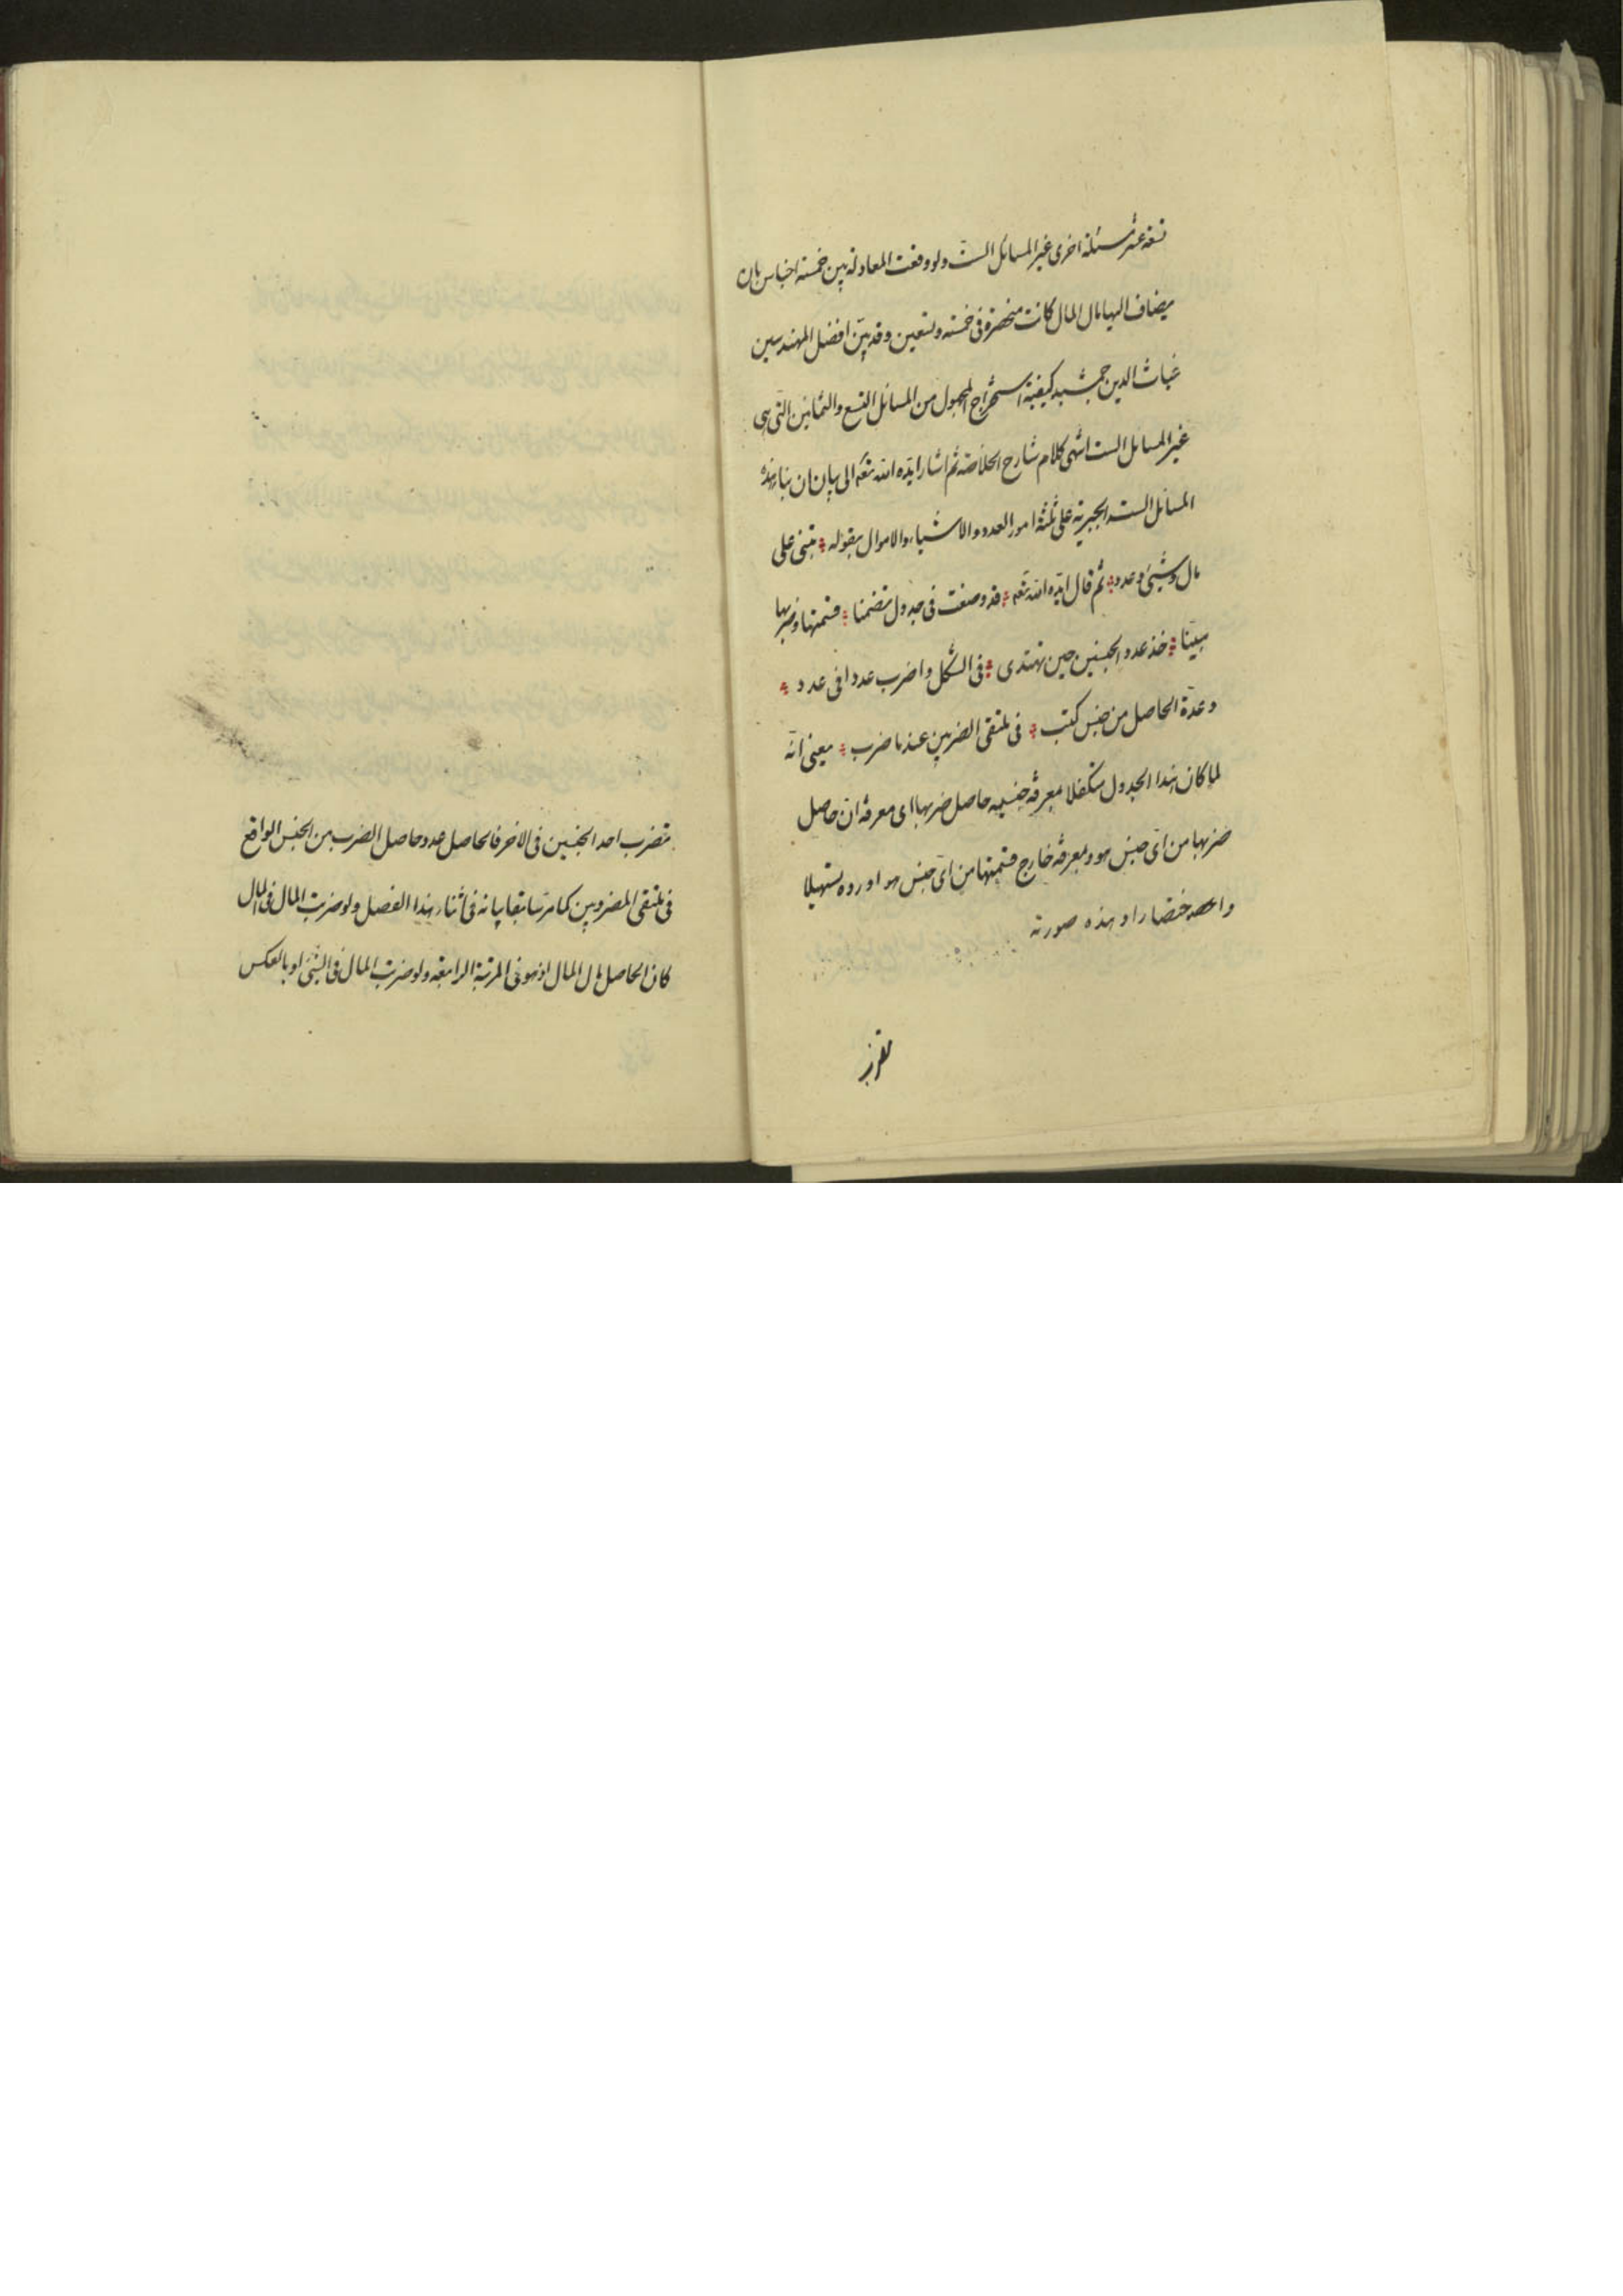 تسعة عشر مسئلة اخرى غير المسائل الست ولو وقعت المعادلة بين خمسة اجناس بان
يضاف اليها مال المال كانت منحصرة في خمسة وتسعين وقد بيّن افضل المهندسين
غياث الدين جمشيد كيفية استخراج المجهول من المسائل التسع والثمانين التي هي
غير المسائل الست انتهى كلام شارح الخلاصة ثم اشار ايّده الله تعه الى بيان ان بناء هذه
المسائل الست الجبرية على ثلثة امور العدد والاشياء والاموال بقوله ؞ تبنى على
مال وشيئ وعدد ؞ ثم قال ايّده الله تعه ؞ قد وضعت في جدول تضمنا ؞ قسمتها وضربها
مبيّنا ؞ خذ عدد الجنسين حين تهتدى ؞ في الشكل واضرب عددا في عدد ؞
وعدّة الحاصل من جنس كتب ؞ في ملتقى الضربين عندنا ضرب ؞ يعني انّه
لما كان هذا الجدول متكفلا معرفة جنسيه حاصل ضربها اى معرفة ان حاصل
ضربها من اىّ جنس هو ومعرفة خارج قسمتها من اىّ جنس هو اورده تسهيلا
واختصارا وهذه صورته
تضرب احد الجنسين في الاخر فالحاصل عدد حاصل الضرب من الجنس الواقع
في ملتقى المضروبين كما مرّ سابقا بيانه في اثناء هذا الفصل ولو ضربت المال في المال
كان الحاصل مال المال اذ هو في المرتبة الرابعة ولو ضربت المال في الشيئ او بالعكس